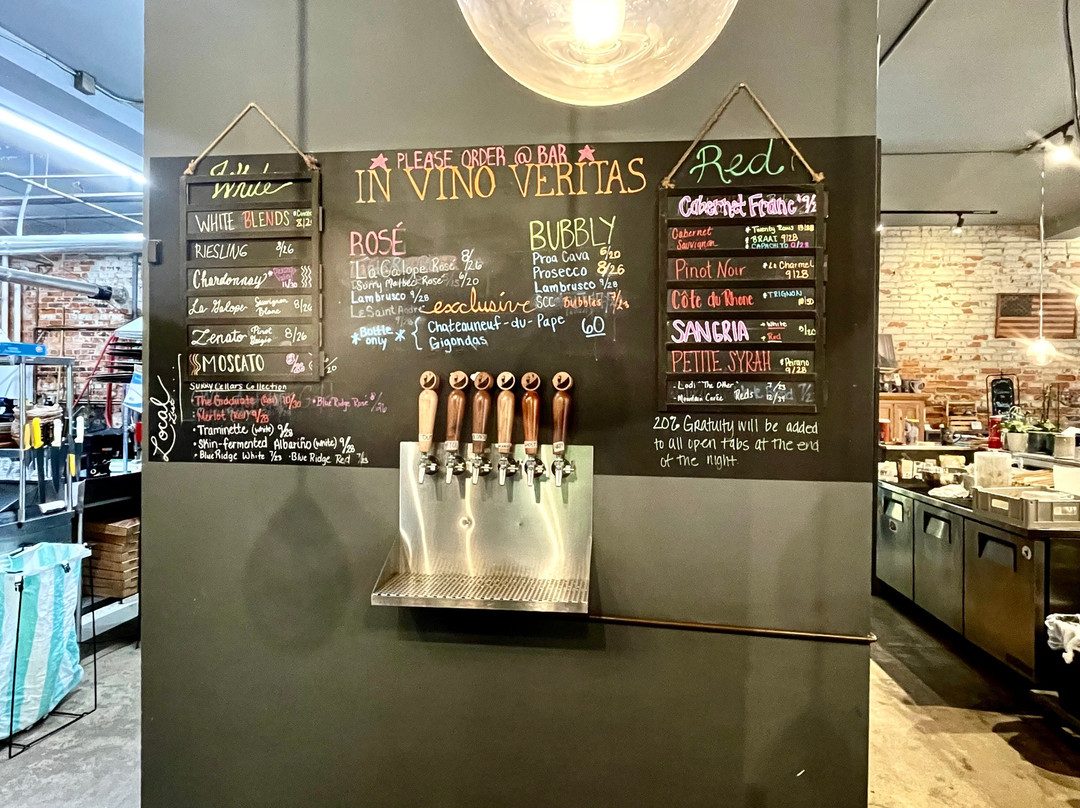 PLEASE ORDER @ BAR
IN VINO VERITAS
White
WHITE BLENDS
RIESLING 8/26
Chardonnay
La Galope Sauvignon Blanc 8/26
Zenato Pinot Grigio 8/26
MOSCATO
Local
Surry Cellars Collection
• The Graduate (Red) 10/30
• Blue Ridge Rose
• Merlot (Red) 9/28
• Traminette (white) 9/28
• Skin-fermented Albariño (white) 9/28
• Blue Ridge White 7/23 • Blue Ridge Red 7/23
ROSÉ
La Galope Rosé 8/26
Surry Malbec Rose 6/20
Lambrusco 9/28
Le Saint André
BUBBLY
Proa Cava 6/20
Prosecco 8/26
Lambrusco 9/28
SCC Bubbles 7/23
exclusive
*Bottle only* { Chateauneuf-du-Pape 60
Gigondas
Red
Cabernet Franc 9/
Cabernet Sauvignon • Twenty Rows
• BRAAT 9/28
• CAPACHITO
Pinot Noir • Le Charmel 9/28
Côte du Rhone • TRIGNON
SANGRIA → White 5/20
→ Red
PETITE SYRAH • Peirano 9/28
- Lodi "The Other"
- Mountain Cuvée
Reds
20% Gratuity will be added
to all open tabs at the end
of the night.